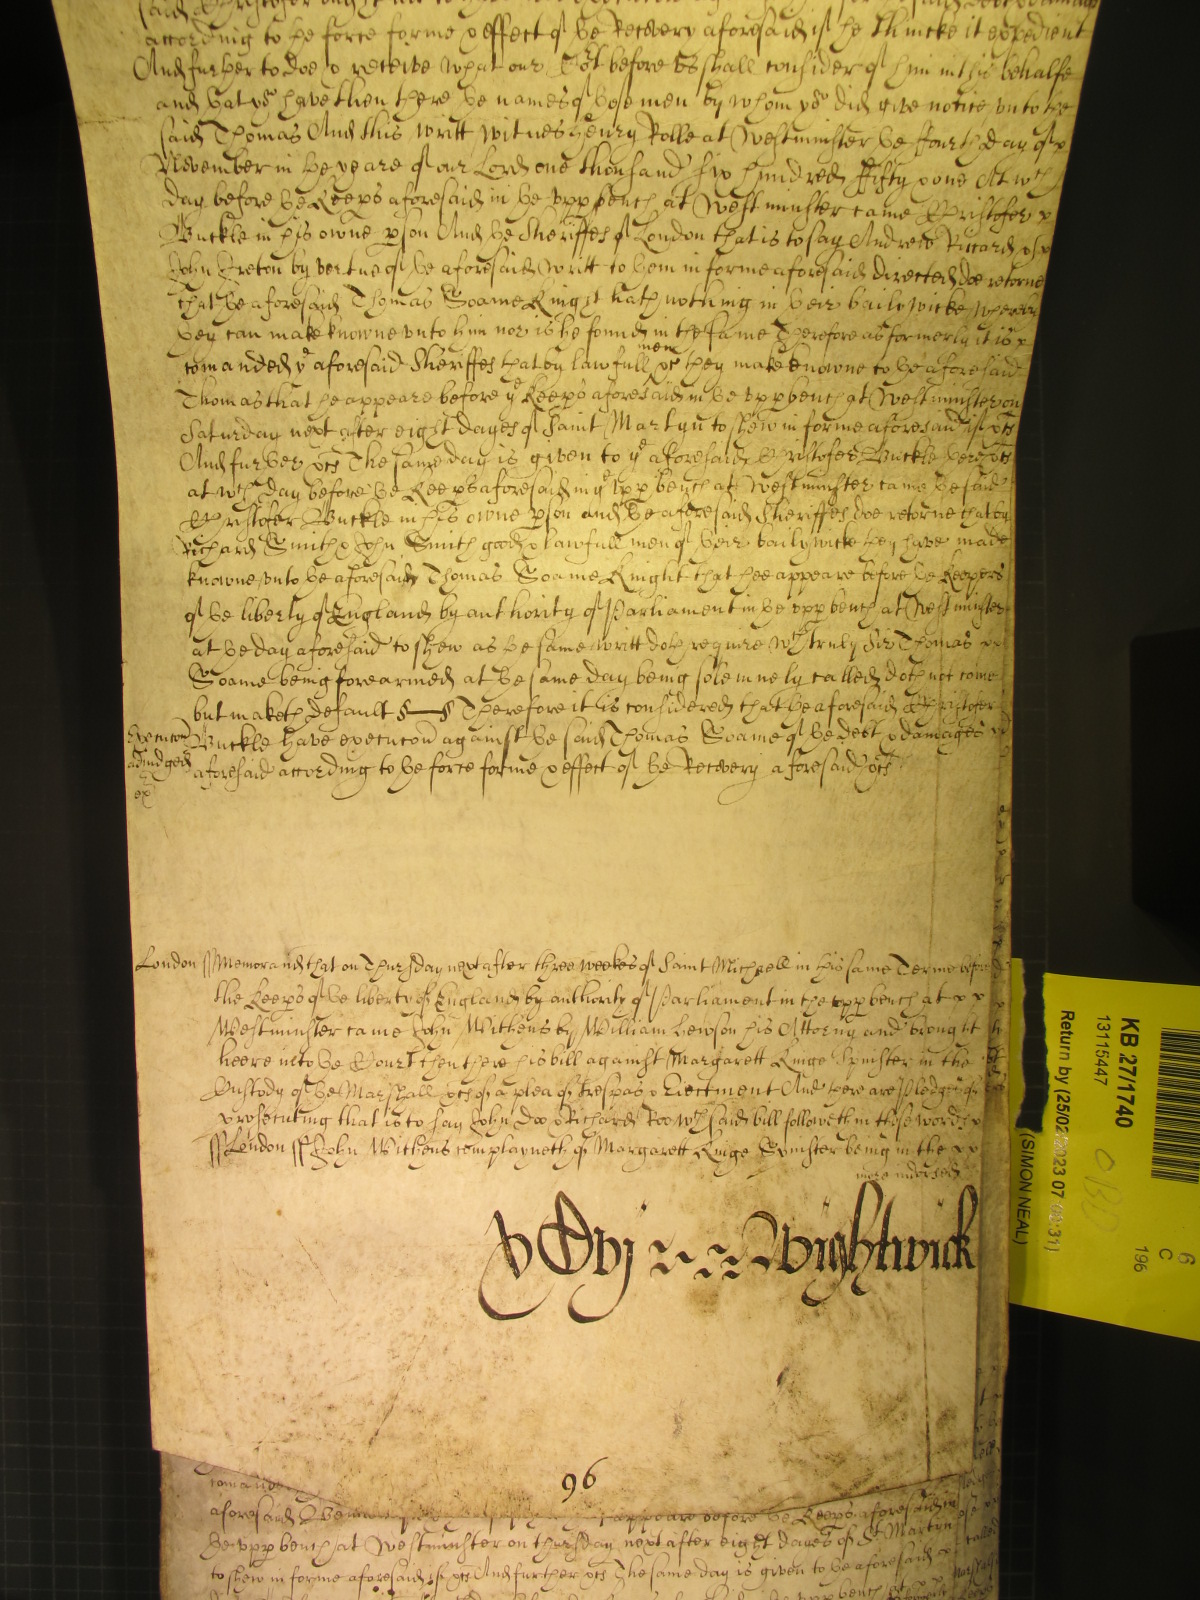 according to the force forme & effect of the Recovery aforesaid if he thincke it expedient
And further to doe & receive what our Cort before us shall consider of him in this behalfe
and that yow have then there the names of those men by whom yow did give notice unto the
said Thomas And this writt witnes Henry Rolle at Westminster the fourth day of
November in the yeare of our Lord one thousand six hundred ffifty & one At wch
day before the Keeps aforesaid in the upp bench at Westminster came Christofer
Buckle in his owne pson And the Sheriffes of London that is to say Andrew Riccard &
John Ireton by vertue of the aforesaid writt to them in forme aforesaid directed doe retorne
that the aforesaid Thomas Soame Knight hath nothing in their bailywicke whereby
they can make knowne unto him nor is he found in the same Therefore as formerly it is
comanded ye aforesaid Sheriffes that by lawfull men &c they make knowne to the aforesaid
Thomas that he appeare before ye Keeps aforesaid in the upp bench at Westminster on
Saturday next after eight dayes of Saint Martyn to shew in forme aforesaid if &c
And further &c The same day is given to ye aforesaid Christofer Buckle here &c
at wch day before the Keeps aforesaid in ye upp bench at Westminster came the said
Christofer Buckle in his owne pson and the aforesaid Sheriffes doe retorne that by
Richard Smith & John Smith good & lawfull men of their bailywicke they have made
knowne unto the aforesaid Thomas Soame Knight that hee appeare before the Keepers
of the liberty of England by authority of Parliament in the upp bench at Westminster
at the day aforesaid to shew as the same writt doth require wch truly Sir Thomas
Soame being forearmed at the same day being solemnely called doth not come
but maketh default Therefore it is considered that the aforesaid Christofer
Execucon Buckle have execucon against the said Thomas Soame of the debt & damages
adiudged aforesaid according to the force forme & effect of the Recovery aforesaid &c
ex
London Memorand that on Thursday next after three weekes of Saint Michaell in this same Terme before
the Keeps of the liberty of England by authority of Parliament in the upp bench at
Westminster came John Withens by William Lewson his Attorny and brought
heere into the Court then there his bill against Margarett Kinge Spinster in the
Custody of the Marshall &c of a plea of trespas & Eiectment And there are Pledges of
prosecuting that is to say John Doe & Richard Roo wch said bill followeth in these words
London John Withens complayneth of Margarett Kinge Spinster being in the
more indorsed
Wightwick
96
aforesaid appeare before the Keeps aforesaid in
the upp bench at Westminster on thursday next after eight dayes of St Martyn
to shew in forme aforesaid if &c And further &c The same day is given to the aforesaid
KB 27/1740
13115447
Return by (25/02/2023 07
(SIMON NEAL)
6
C
196